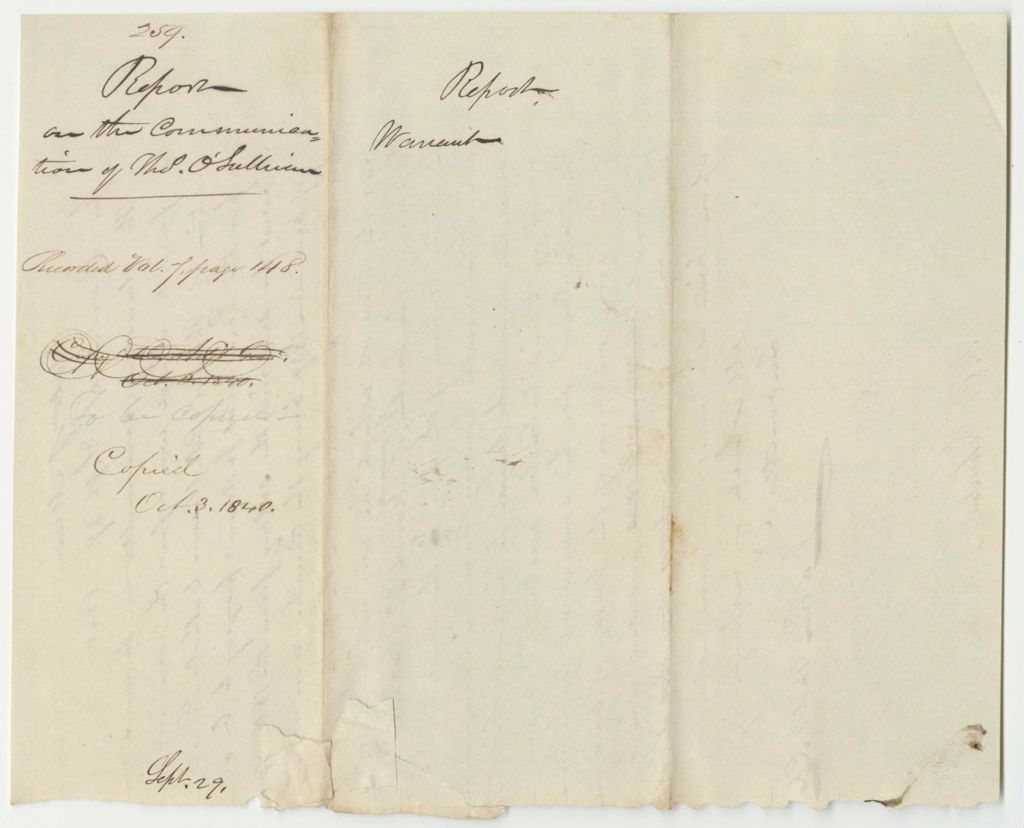 259.
Report
on the Communica=
tion of Thos. O'Sullivan
Recorded Vol. 7, page 148.
Oct. 3. 1840.
To be copied
Copied
Oct. 3. 1840.
Sept. 29.
Report
Warrant